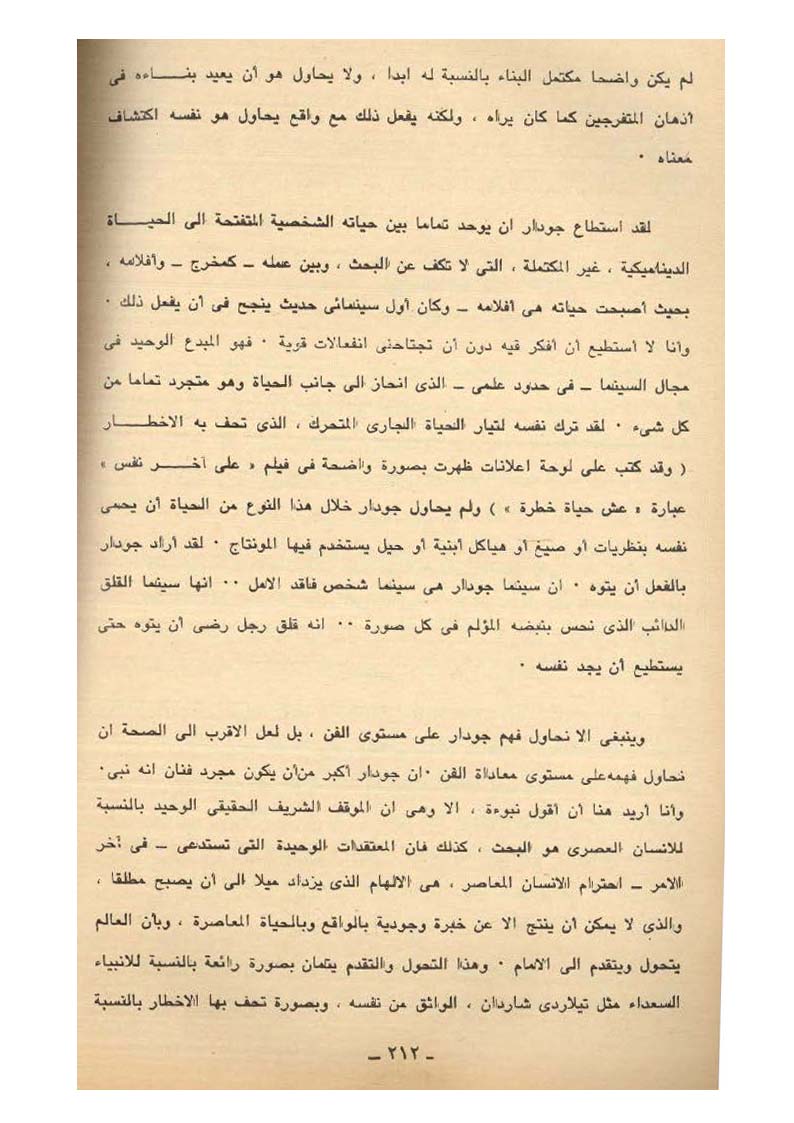 لم يكن واضحا مكتمل البناء بالنسبة له ابدا ، ولا يحاول هو أن يعيد بنـــــاءه فى
أذهان المتفرجين كما كان يراه ، ولكنه يفعل ذلك مع واقع يحاول هو نفسه اكتشاف
معناه ٠
لقد استطاع جودار ان يوحد تماما بين حياته الشخصية المتفتحة الى الحيـــــاة
الديناميكية ، غير المكتملة ، التى لا تكف عن البحث ، وبين عمله ــ كمخرج ــ وأفلامه ،
بحيث أصبحت حياته هى أفلامه ــ وكان أول سينمائى حديث ينجح فى أن يفعل ذلك ٠
وأنا لا أستطيع أن أفكر فيه دون أن تجتاحنى انفعالات قوية ٠ فهو المبدع الوحيد فى
مجال السينما ــ فى حدود علمى ــ الذى انحاز الى جانب الحياة وهو متجرد تماما من
كل شىء ٠ لقد ترك نفسه لتيار الحياة الجارى المتحرك ، الذى تحف به الاخطـــــار
( وقد كتب على لوحة اعلانات ظهرت بصورة واضحة فى فيلم « على آخـــر نفس »
عبارة « عش حياة خطرة » ) ولم يحاول جودار خلال هذا النوع من الحياة أن يحمى
نفسه بنظريات أو صيغ أو هياكل أبنية أو حيل يستخدم فيها المونتاج ٠ لقد أراد جودار
بالفعل أن يتوه ٠ ان سينما جودار هى سينما شخص فاقد الامل ٠٠ انها سينما القلق
الدائب الذى نحس بنبضه المؤلم فى كل صورة ٠٠ انه قلق رجل رضى أن يتوه حتى
يستطيع أن يجد نفسه ٠
وينبغى الا نحاول فهم جودار على مستوى الفن ، بل لعل الاقرب الى الصحة ان
نحاول فهمه على مستوى معاداة الفن ٠ ان جودار أكبر من أن يكون مجرد فنان انه نبى٠
وأنا أريد هنا أن أقول نبوءة ، الا وهى ان الموقف الشريف الحقيقى الوحيد بالنسبة
للانسان العصرى هو البحث ، كذلك فان المعتقدات الوحيدة التى تستدعى ــ فى آخر
الامر ــ احترام الانسان المعاصر ، هى الالهام الذى يزداد ميلا الى أن يصبح مطلقا ،
والذي لا يمكن أن ينتج الا عن خبرة وجودية بالواقع وبالحياة المعاصرة ، وبأن العالم
يتحول ويتقدم الى الامام ٠ وهذا التحول والتقدم يتمان بصورة رائعة بالنسبة للانبياء
السعداء مثل تيلاردى شاردان ، الواثق من نفسه ، وبصورة تحف بها الاخطار بالنسبة
ــ ٢١٢ ــ